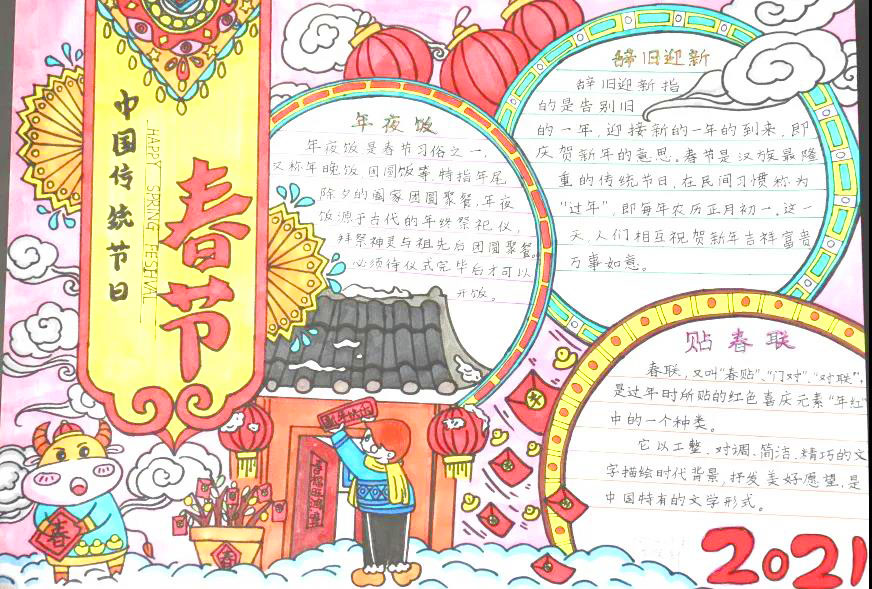 中国传统节日
HAPPY SPRING FESTIVAL
春节
年夜饭
年夜饭是春节习俗之一，
又称年晚饭 团圆饭等 特指年尾
除夕的阖家团圆聚餐，年夜
饭源于古代的年终祭祀仪，
拜祭神灵与祖先后团圆聚餐。
必须待仪式完毕后才可以
开饭。
辞旧迎新
辞旧迎新指
的是告别旧
的一年，迎接新的一年的到来，即
庆贺新年的意思。春节是汉族最隆
重的传统节日，在民间习惯称为
“过年”，即每年农历正月初一。这一
天，人们相互祝贺新年吉祥富贵
万事如意。
贴春联
春联，又叫“春贴”、“门对”、“对联”，
是过年时所贴的红色喜庆元素“年红”
中的一个种类。
它以工整、对调、简洁、精巧的文
字描绘时代背景，抒发美好愿望，是
中国特有的文学形式。
春
春
2021